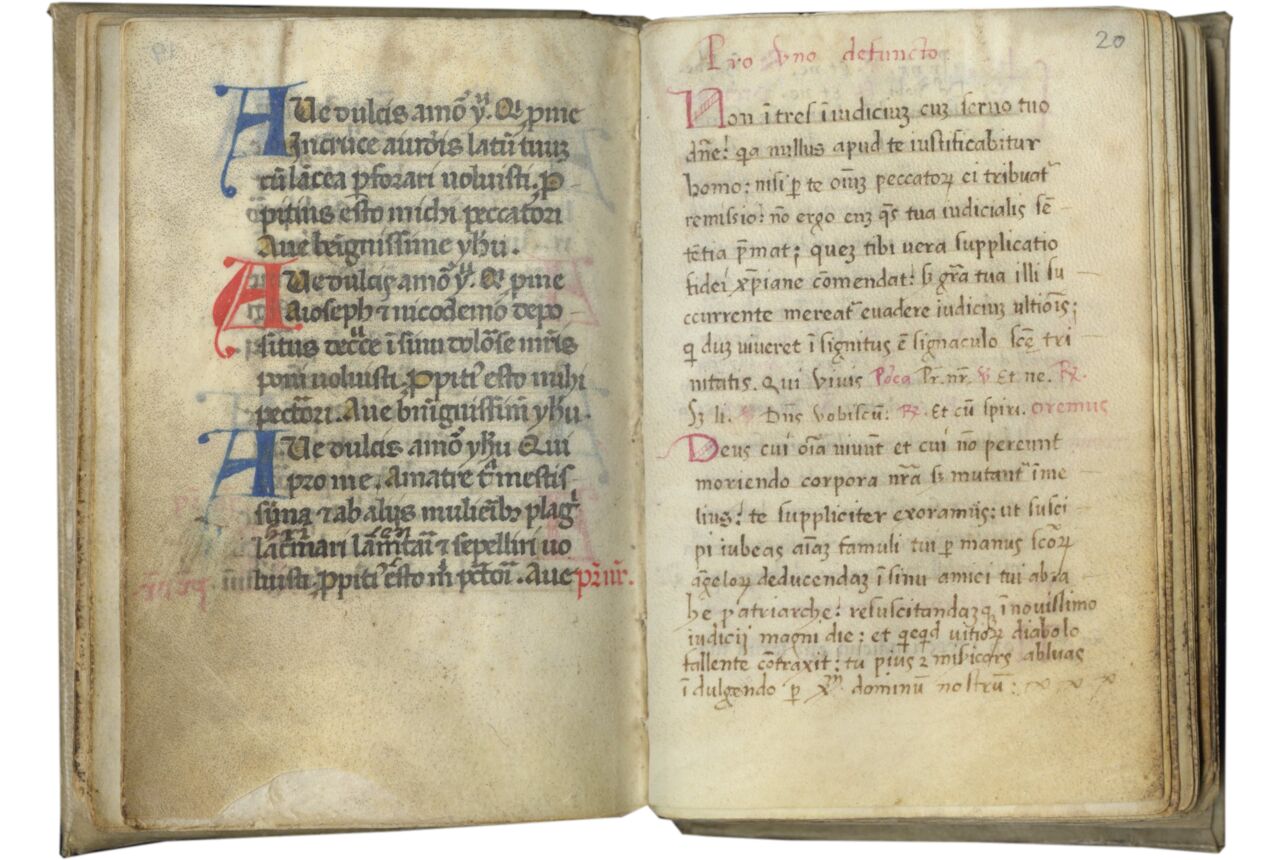 Aue dulcis amor̄ yħu. Qi ꝓ me
In cruce aurōis latū tuuꝫ
cū lācea ꝑforari uoluisti. Ꝓ
pitius esto michi peccatori
Aue benignissime yħu.
Aue dulcis amor̄ yħu. Qi ꝓ me
A ioseph ⁊ nicodemo depo
situs de c̄ce ī sinu dolōse mr̄is
poni uoluisti. Ꝓpitiꝰ esto mihi
pecc̄tori. Aue bnīgnissim̄ yħu.
Aue dulcis amor̄ yħu Qui
pro me. Amatre t̄ mestis
sima ⁊ ab alijs mulieribꝫ plagi
lac̄mari lam̄tari ⁊ sepelliri uo
luisti. Ꝓpitiꝰ esto m̄ pctōri. Aue pr̄ nr̄.
20
Pro vno defuncto
Non ītres ī iudiciuꝫ cuꝫ seruo tuo
dn̄e: qa nullus apud te iustificabitur
homo: nisi ꝑ te oīuꝫ peccatoꝝ ei tribuat᷑
remissio: nō ergo euꝫ qs̄ tua iudicialis sē
tētia p̄mat; queꝫ tibi uera supplicatio
fidei xp̄iane cōmendat: sꝫ gr̄a tua illi su
ccurrente mereat᷑ euadere iudiciuꝫ ultiōis;
q duꝫ uiueret ī signitus ē signaculo scē tri
nitatis. Qui vivis Po'ca Pr̄. nr̄. ℣ Et ne. ℟.
Sꝫ li. ℣ Dn̄s vobiscū: ℟. Et cū spiri. oremus
Deus cui oīa vivūt et cui nō pereunt
moriendo corpora nr̄a sꝫ mutant᷑ ī me
lius: te suppliciter exoramus; ut susci
pi iubeas aīaꝫ famuli tui ꝑ manus scōꝝ
āgeloꝝ deducendaꝫ ī sinu amici tui abra
he patriarche: resuscitandaꝫqꝫ ī novissimo
iudicij magni die: et qcqd vitioꝝ diabolo
fallente cōtraxit: tu pius ⁊ misicors abluas
īdulgendo ꝑ xp̄m dominū nostrū: